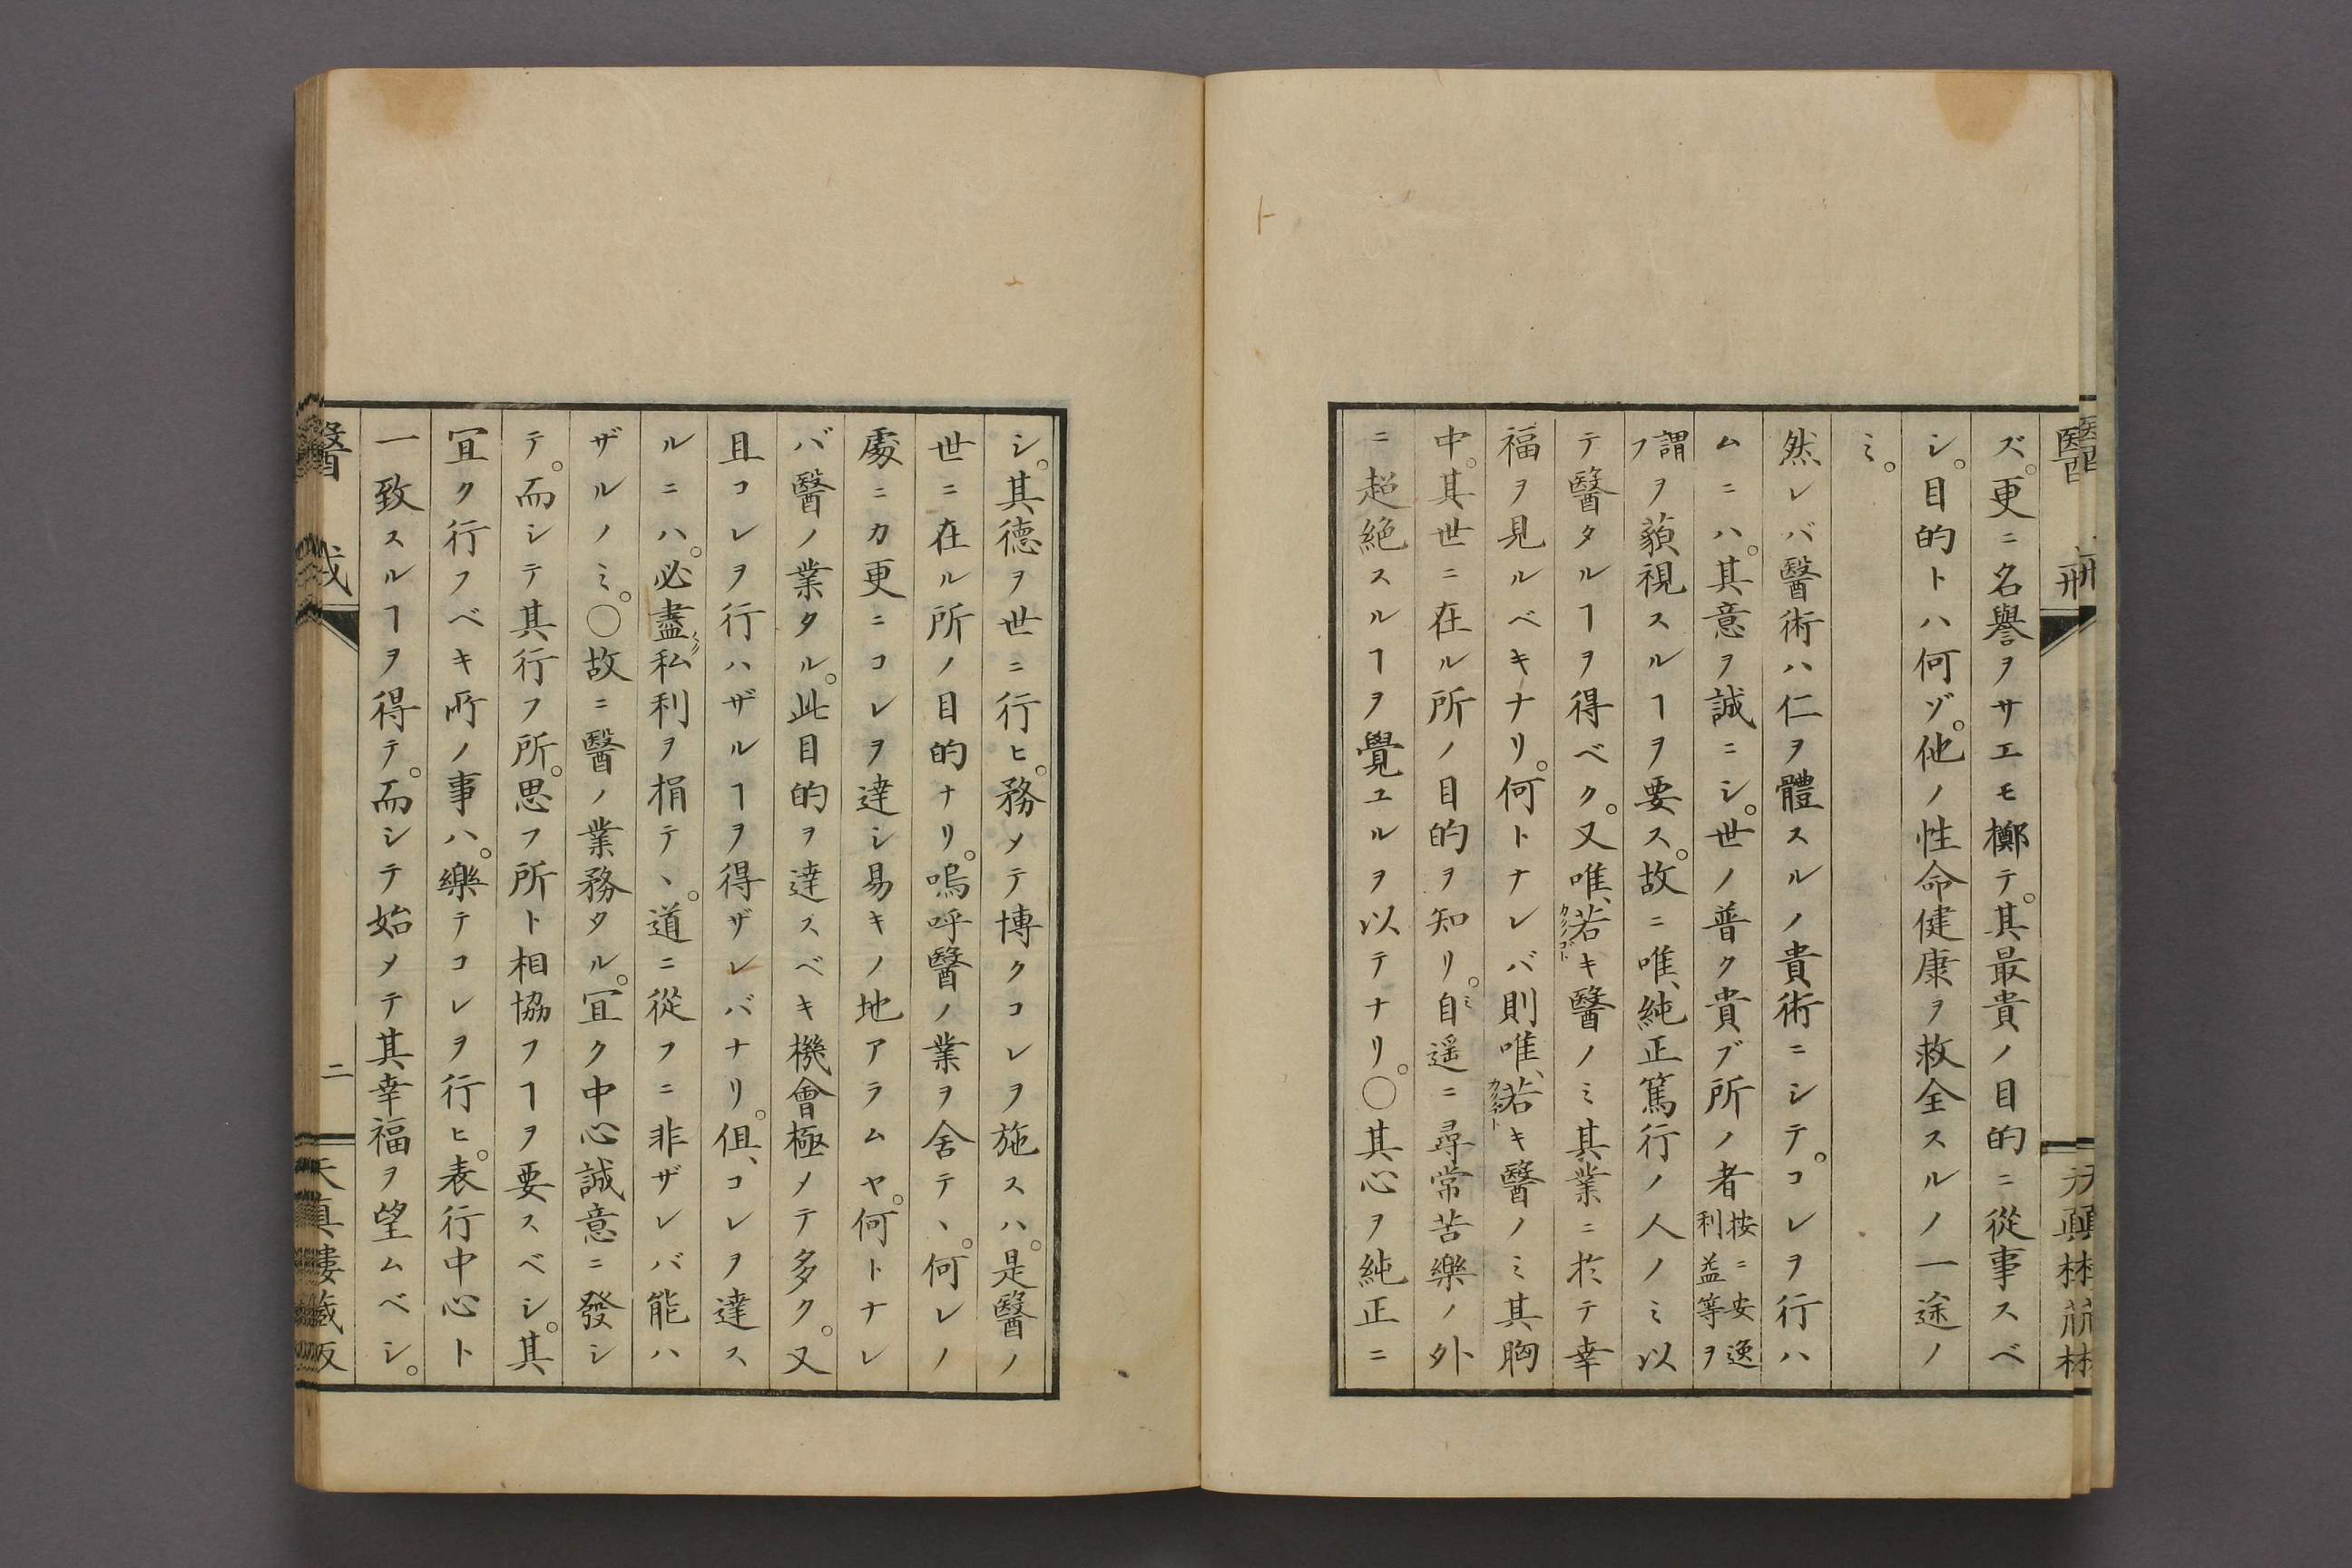 ズ。更ニ名譽ヲサエモ擲テ。其最貴ノ目的ニ從事スベ
シ。目的トハ何ゾ。他ノ性命健康ヲ救全スルノ一途ノ
ミ。
然レバ醫術ハ仁ヲ體スルノ貴術ニシテ。コレヲ行ハ
ムニハ。其意ヲ誠ニシ。世ノ普ク貴ブ所ノ者按ニ安逸利益等ヲ
謂フヲ藐視スルヿヲ要ス。故ニ唯、純正篤行ノ人ノミ以
テ醫タルヿヲ得ベク。又唯、若キ醫ノミ其業ニ於テ幸
福ヲ見ルベキナリ。何トナレバ則唯、若キ醫ノミ其胸
中。其世ニ在ル所ノ目的ヲ知リ。自ミ遥ニ尋常苦樂ノ外
ニ超絶スルヿヲ覺ユルヲ以テナリ。○其心ヲ純正ニ
シ。其德ヲ世ニ行ヒ。務メテ博クコレヲ施スハ。是醫ノ
世ニ在ル所ノ目的ナリ。嗚呼醫ノ業ヲ舍テヽ。何レノ
處ニカ更ニコレヲ達シ易キノ地アラムヤ。何トナレ
バ醫ノ業タル。此目的ヲ達スベキ機會極メテ多ク。又
且コレヲ行ハザルヿヲ得ザレバナリ。但、コレヲ達ス
ルニハ。必盡ク私利ヲ捐テヽ。道ニ從フニ非ザレバ能ハ
ザルノミ。○故ニ醫ノ業務タル。宜ク中心誠意ニ發シ
テ。而シテ其行フ所。思フ所ト相協フヿヲ要スベシ。其
宜ク行フベキ所ノ事ハ。樂テコレヲ行ヒ。表行中心ト
一致スルヿヲ得テ。而シテ始メテ其幸福ヲ望ムベシ。
醫戒 二 天真樓藏版